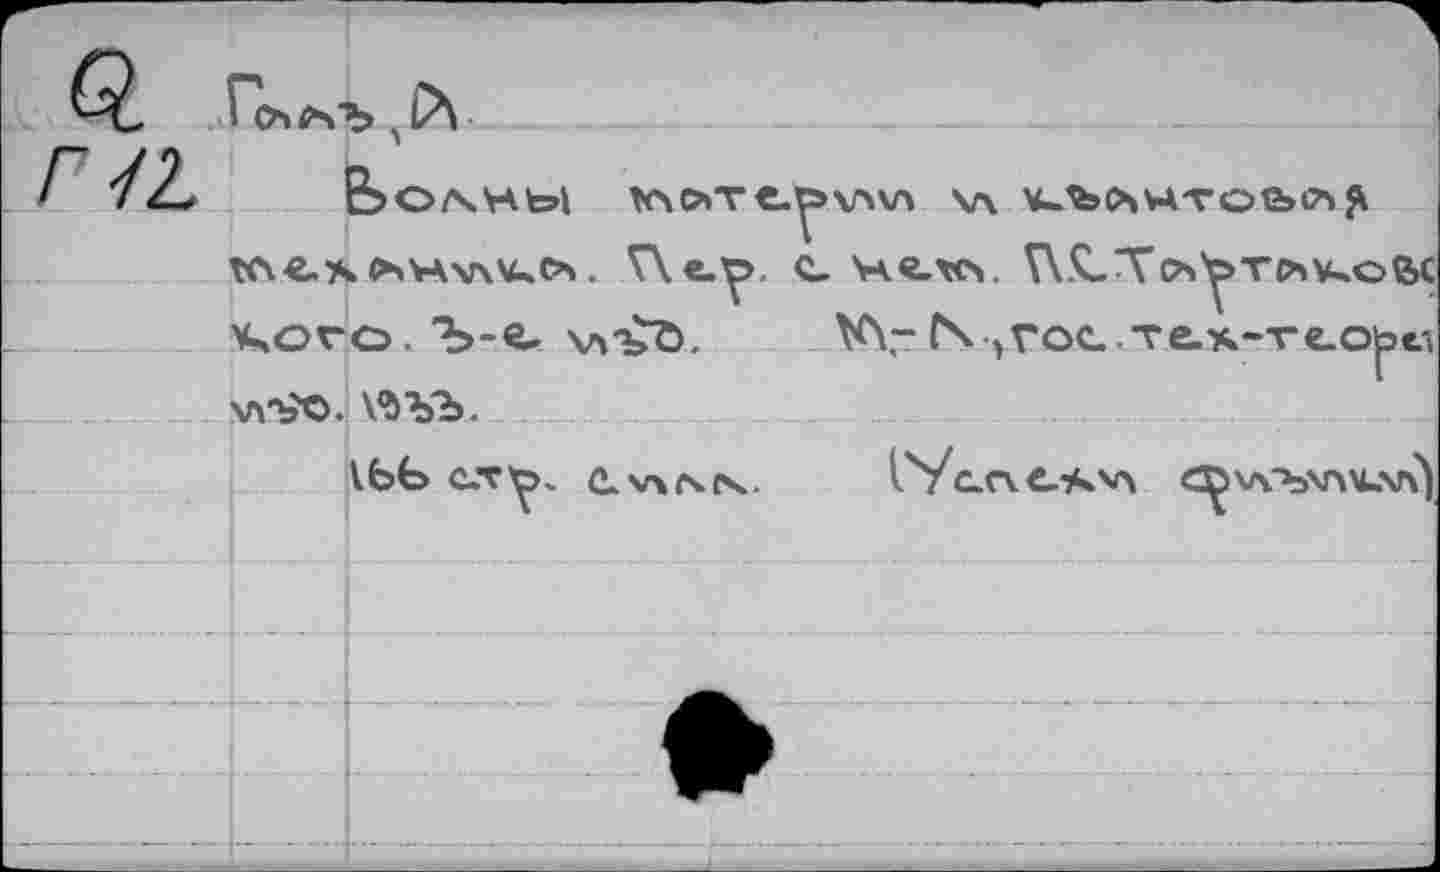 Q Гааз, А
Г 12 Волны материи и квантовая
механика. Пер. с нем. П.С. Тартаковс
кого. 3-е изд. М.-Л., гос. тех.-теорет
изд. 1933.
с илл. (Успехи физики)